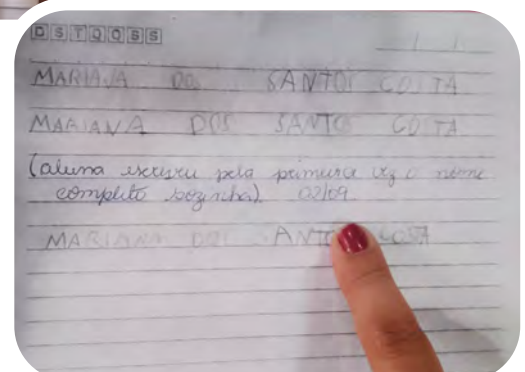 D S T Q Q S S
MARIAJA DOS SANTOS COSTA
MARIANA DOS SANTOS COSTA
(aluna escreveu pela primeira vez o nome
completo sozinha). 02/09
MARIANA DOS ANTO COSTA